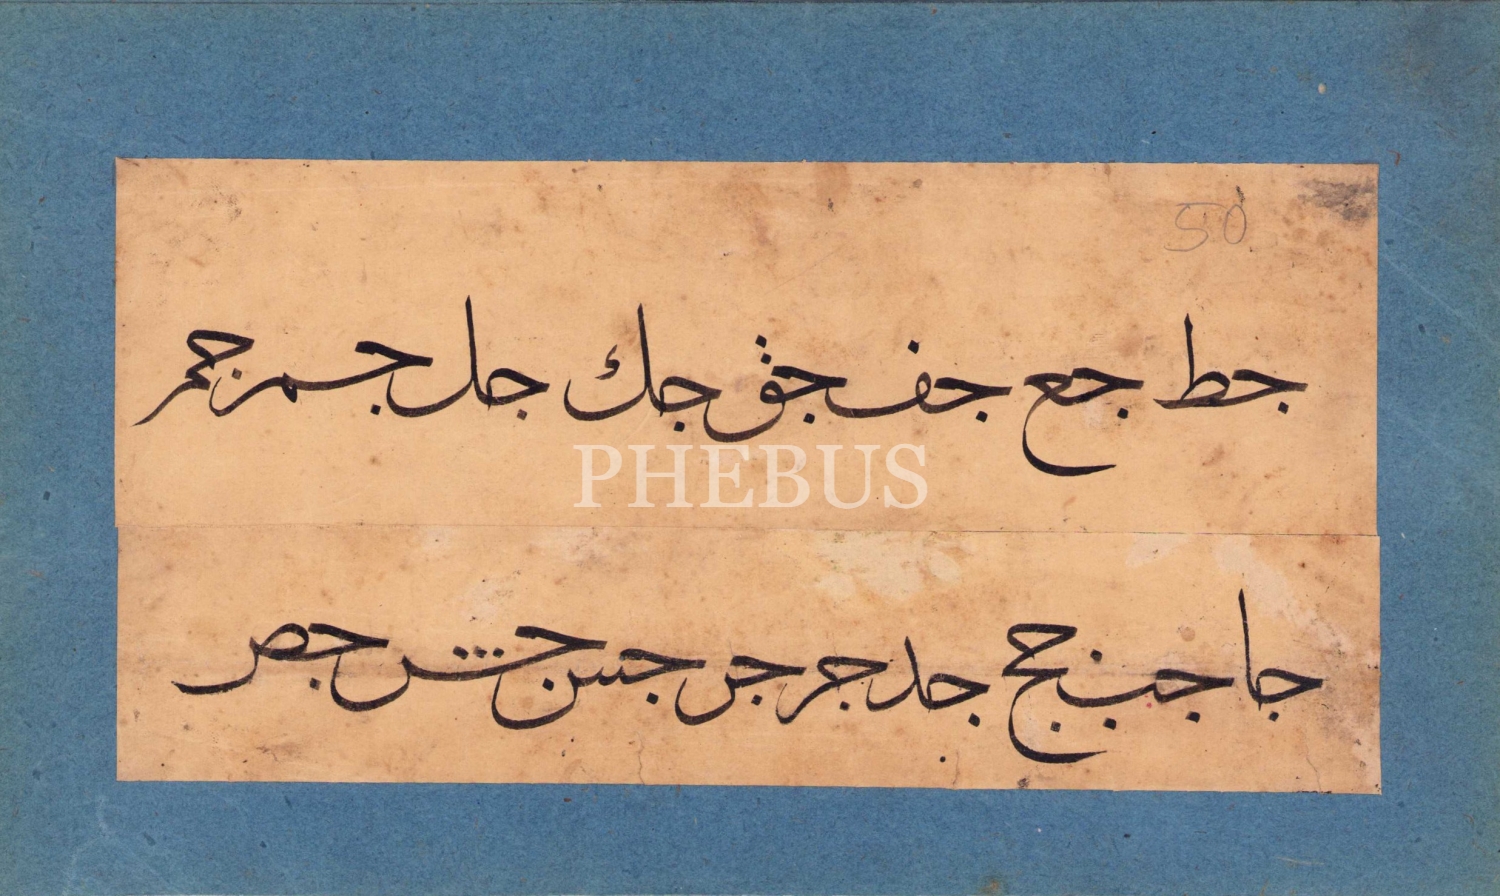 50
جط جع جف جق جك جل جم جم
PHEBUS
جا جب جج جد جر جر جس جش جص